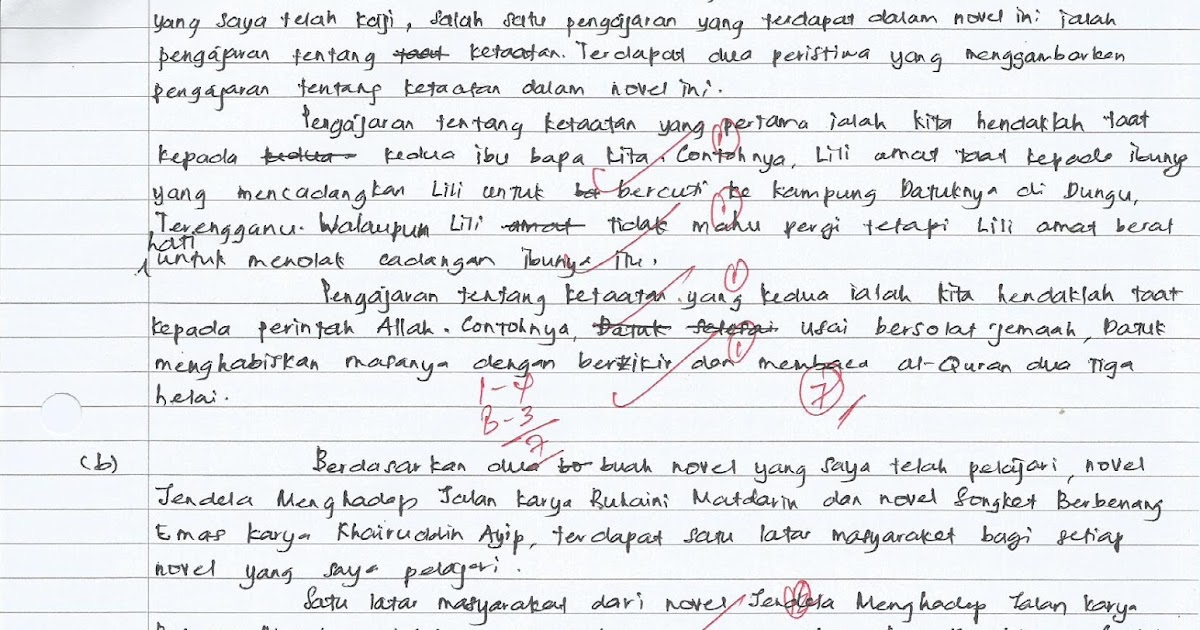 yang saya telah kaji, salah satu pengajaran yang terdapat dalam novel ini ialah
pengajaran tentang taat ketaatan. Terdapat dua peristiwa yang menggambarkan
pengajaran tentang ketaatan dalam novel ini.
Pengajaran tentang ketaatan yang pertama ialah kita hendaklah taat
kepada kedua kedua ibu bapa kita. Contohnya, Lili amat taat kepada ibunya
yang mencadangkan Lili untuk bercuti ke kampung Datuknya di Dungu,
Terengganu. Walaupun Lili amat tidak mahu pergi tetapi Lili amat berat
hati
untuk menolak cadangan ibunya itu.
Pengajaran tentang ketaatan yang kedua ialah kita hendaklah taat
kepada perintah Allah. Contohnya, Datuk selesai usai bersolat jemaah, Datuk
menghabiskan masanya dengan berzikir dan membaca al-Quran dua tiga
helai.
1 - 4
B - 3
7
7
(b) Berdasarkan dua bo buah novel yang saya telah pelajari, novel
Jendela Menghadap Jalan karya Ruhaini Matdarin dan novel Songket Berbenang
Emas karya Khairuddin Ayip, terdapat satu latar masyarakat bagi setiap
novel yang saya pelajari.
Satu latar masyarakat dari novel Jendela Menghadap Jalan karya